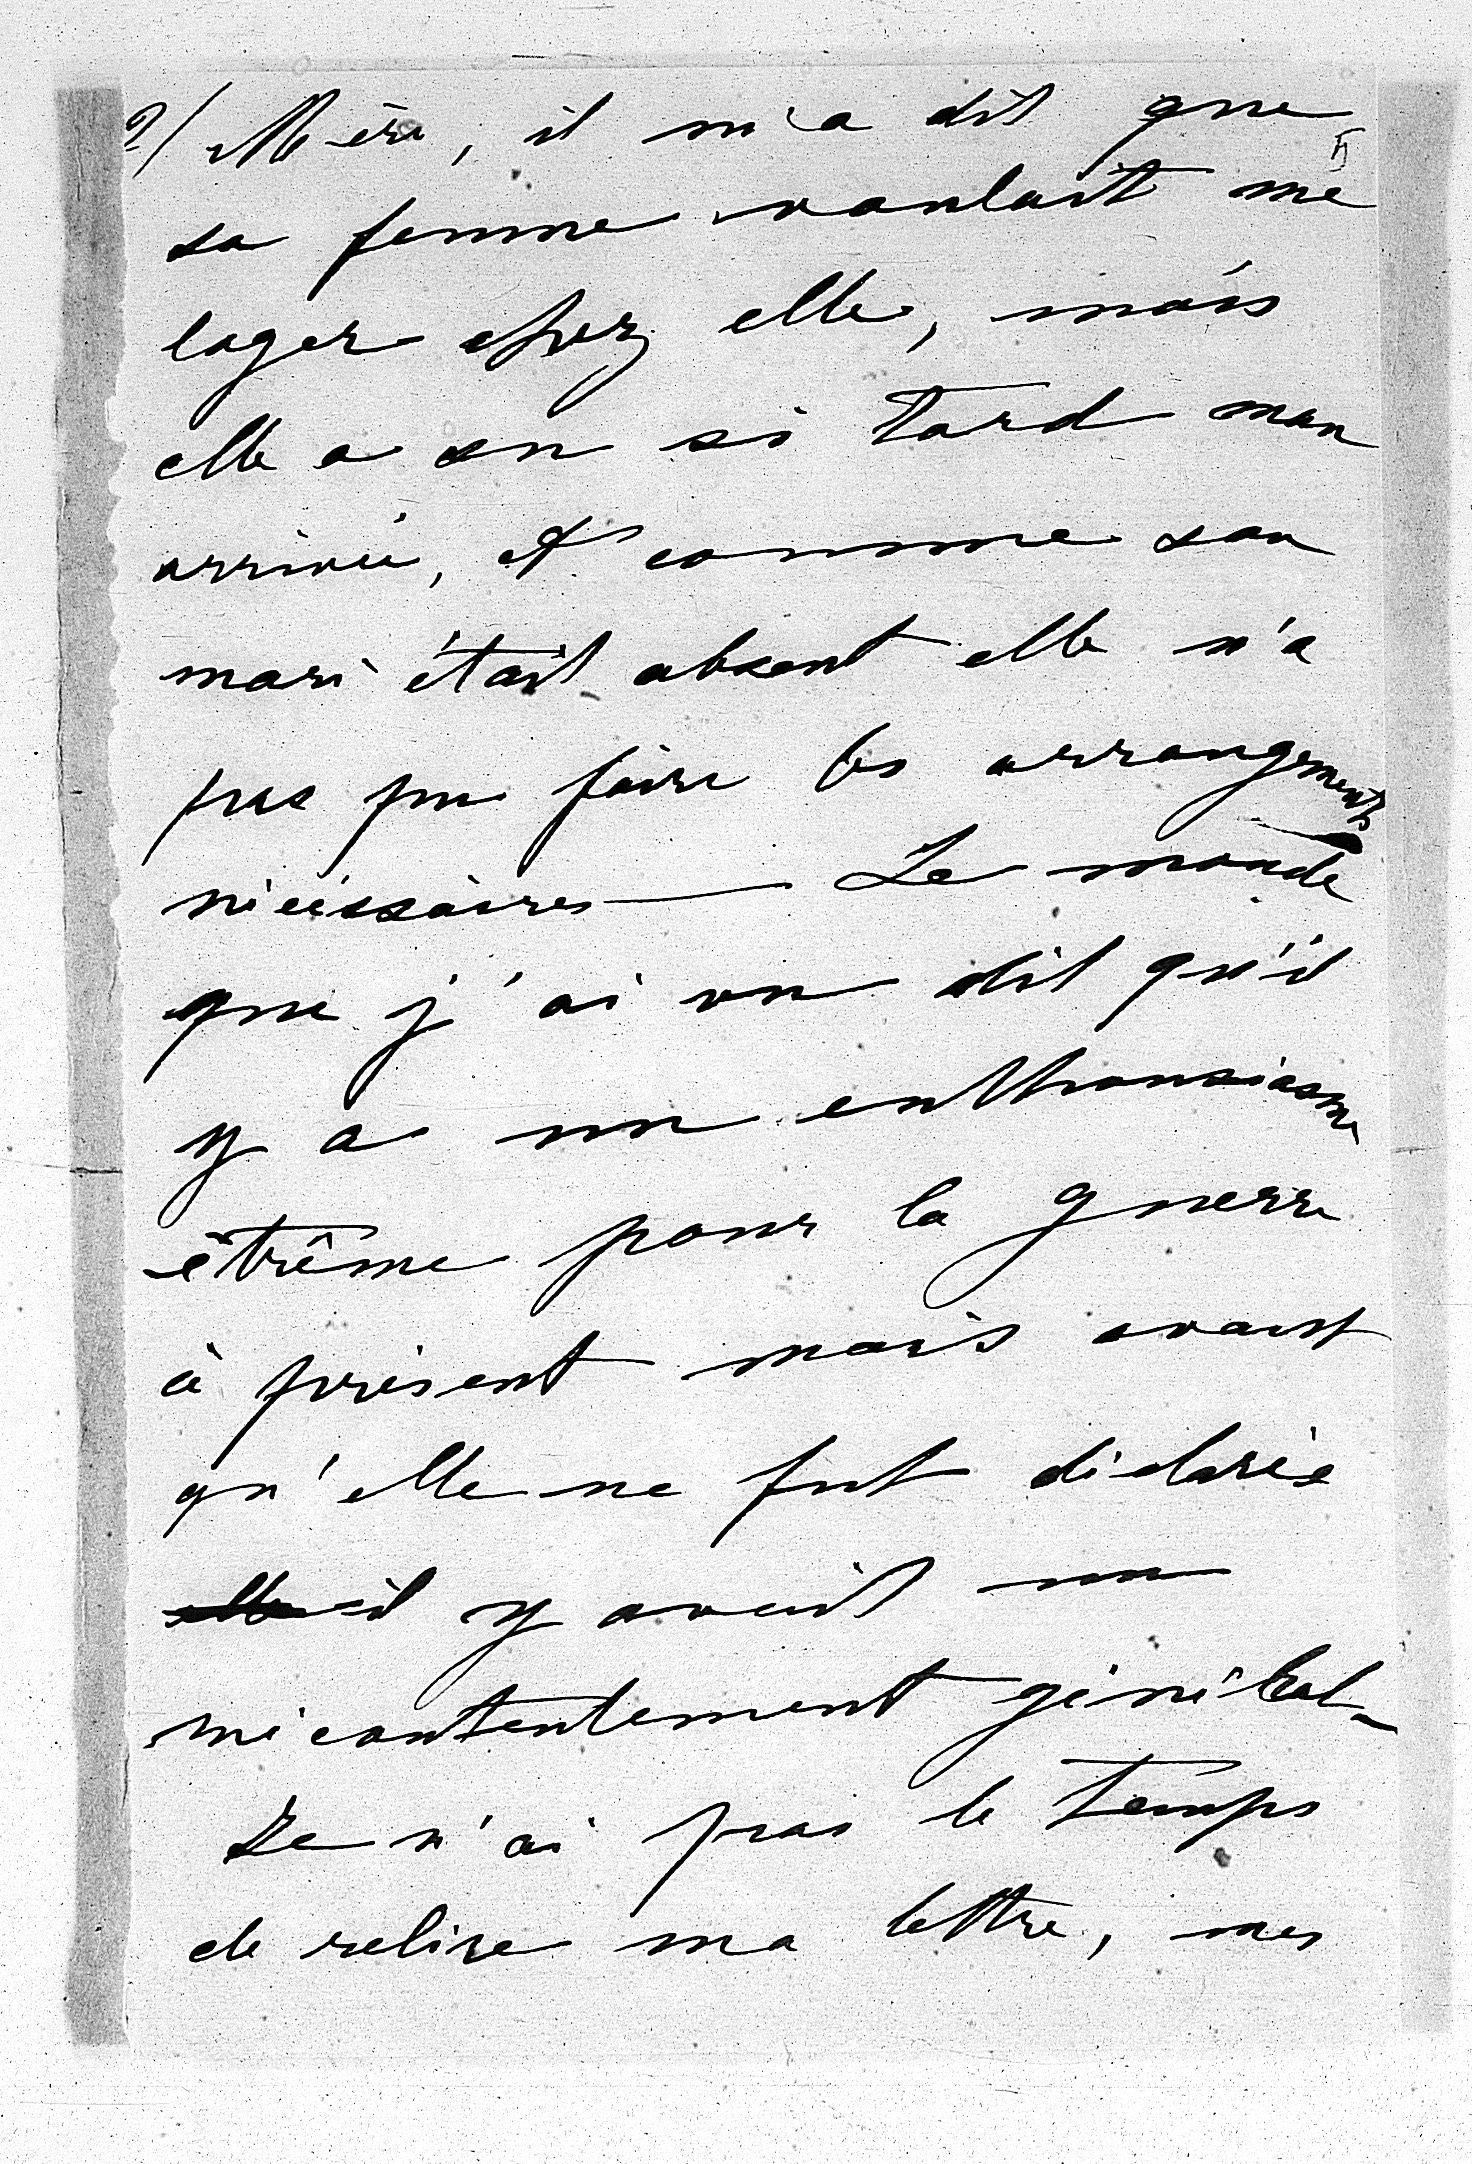 2/ Mère, il m'a dit que
5
sa femme voulait me
loger chez elle, mais
elle a su si tard mon
arrivée, et comme son
mari était absent elle n'a
pas pu faire les arrangements
nécéssaires — Le monde
que j'ai vu dit qu'il
y a un enthousiasme
êtrême pour la guerre
à présent mais avant
qu'elle ne fut déclarée
elle il y avait un
mécontentement général –
Je n'ai pas le temps
de relire ma lettre, mes